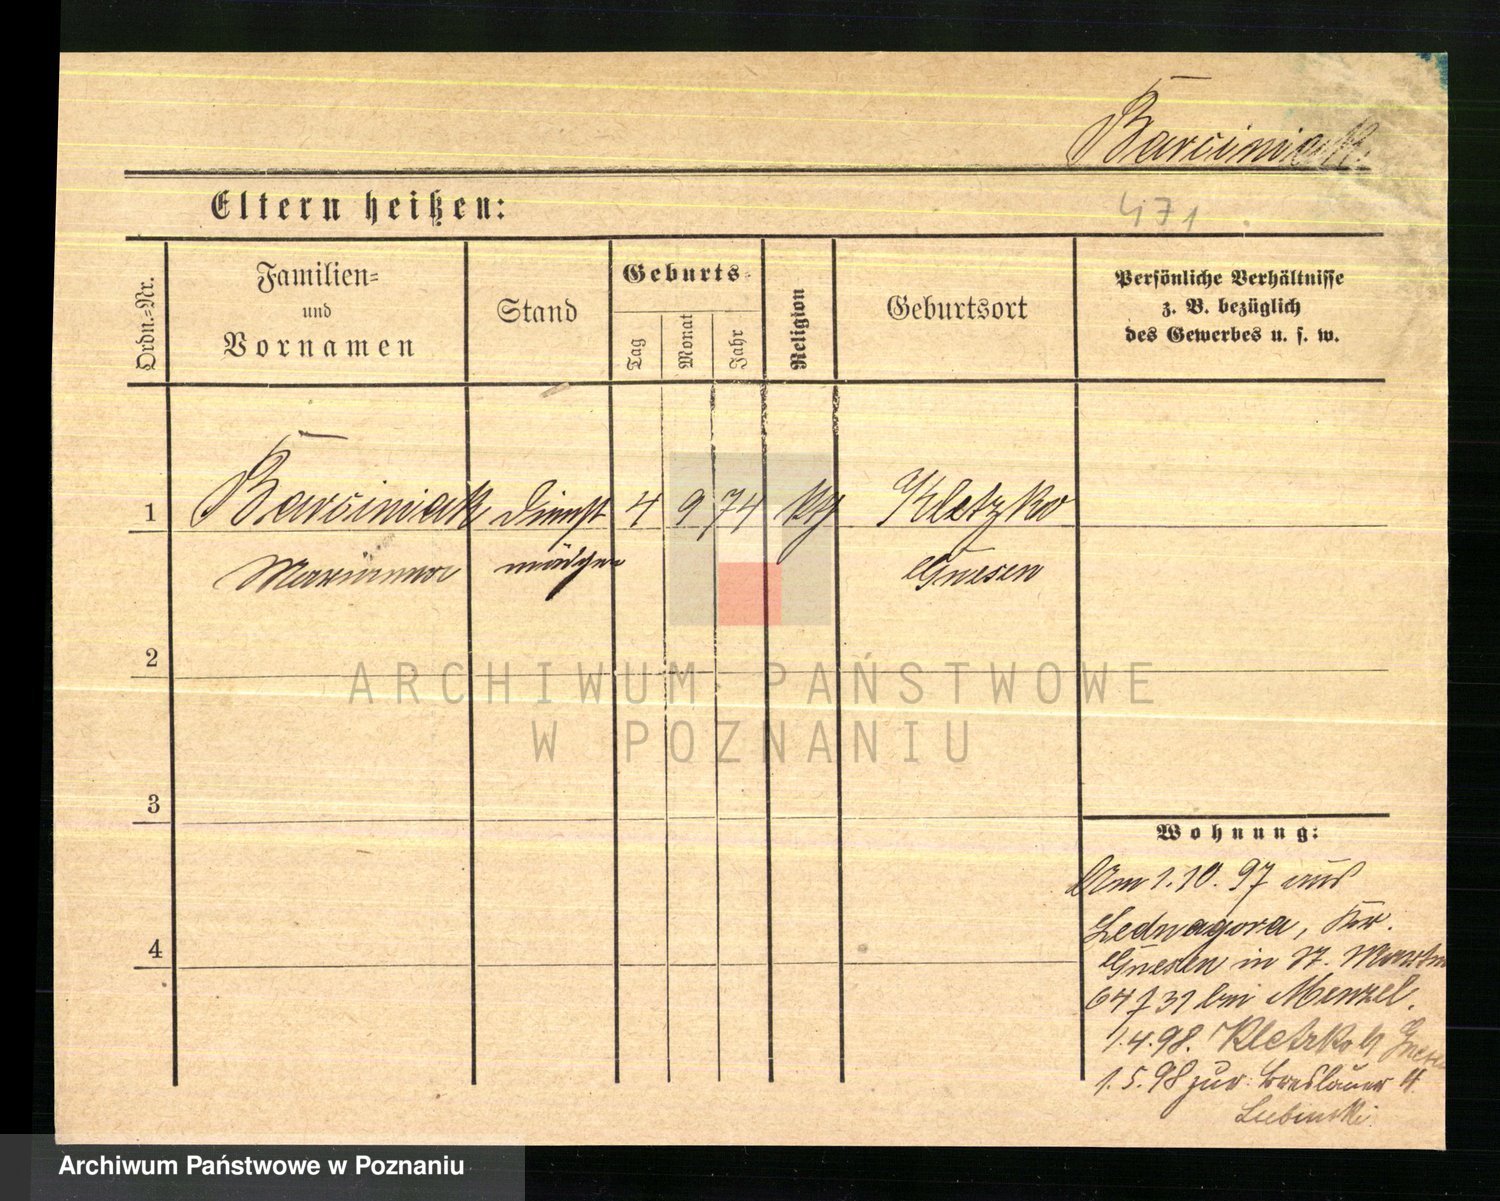 Barciniak.
Eltern heißen:
471
Ordn.-Nr.
Familien-
und
Vornamen
Stand
Geburts-
Tag
Monat
Jahr
Religion
Geburtsort
Persönliche Verhältnisse
z. B. bezüglich
des Gewerbes u. s. w.
1
Barciniak Dienst 4 9 74 Kletzko
Marianna mädchen Gnesen
2
ARCHIWUM PAŃSTWOWE
W POZNANIU
3
Wohnung:
Am 1.10.97 aus
Lednagora, Kr.
4
Gnesen in St. Martin
64 bei Menzel.
1.4.98. Kletzko
1.5.98 zur. Breslauer
Lubinski.
Archiwum Państwowe w Poznaniu